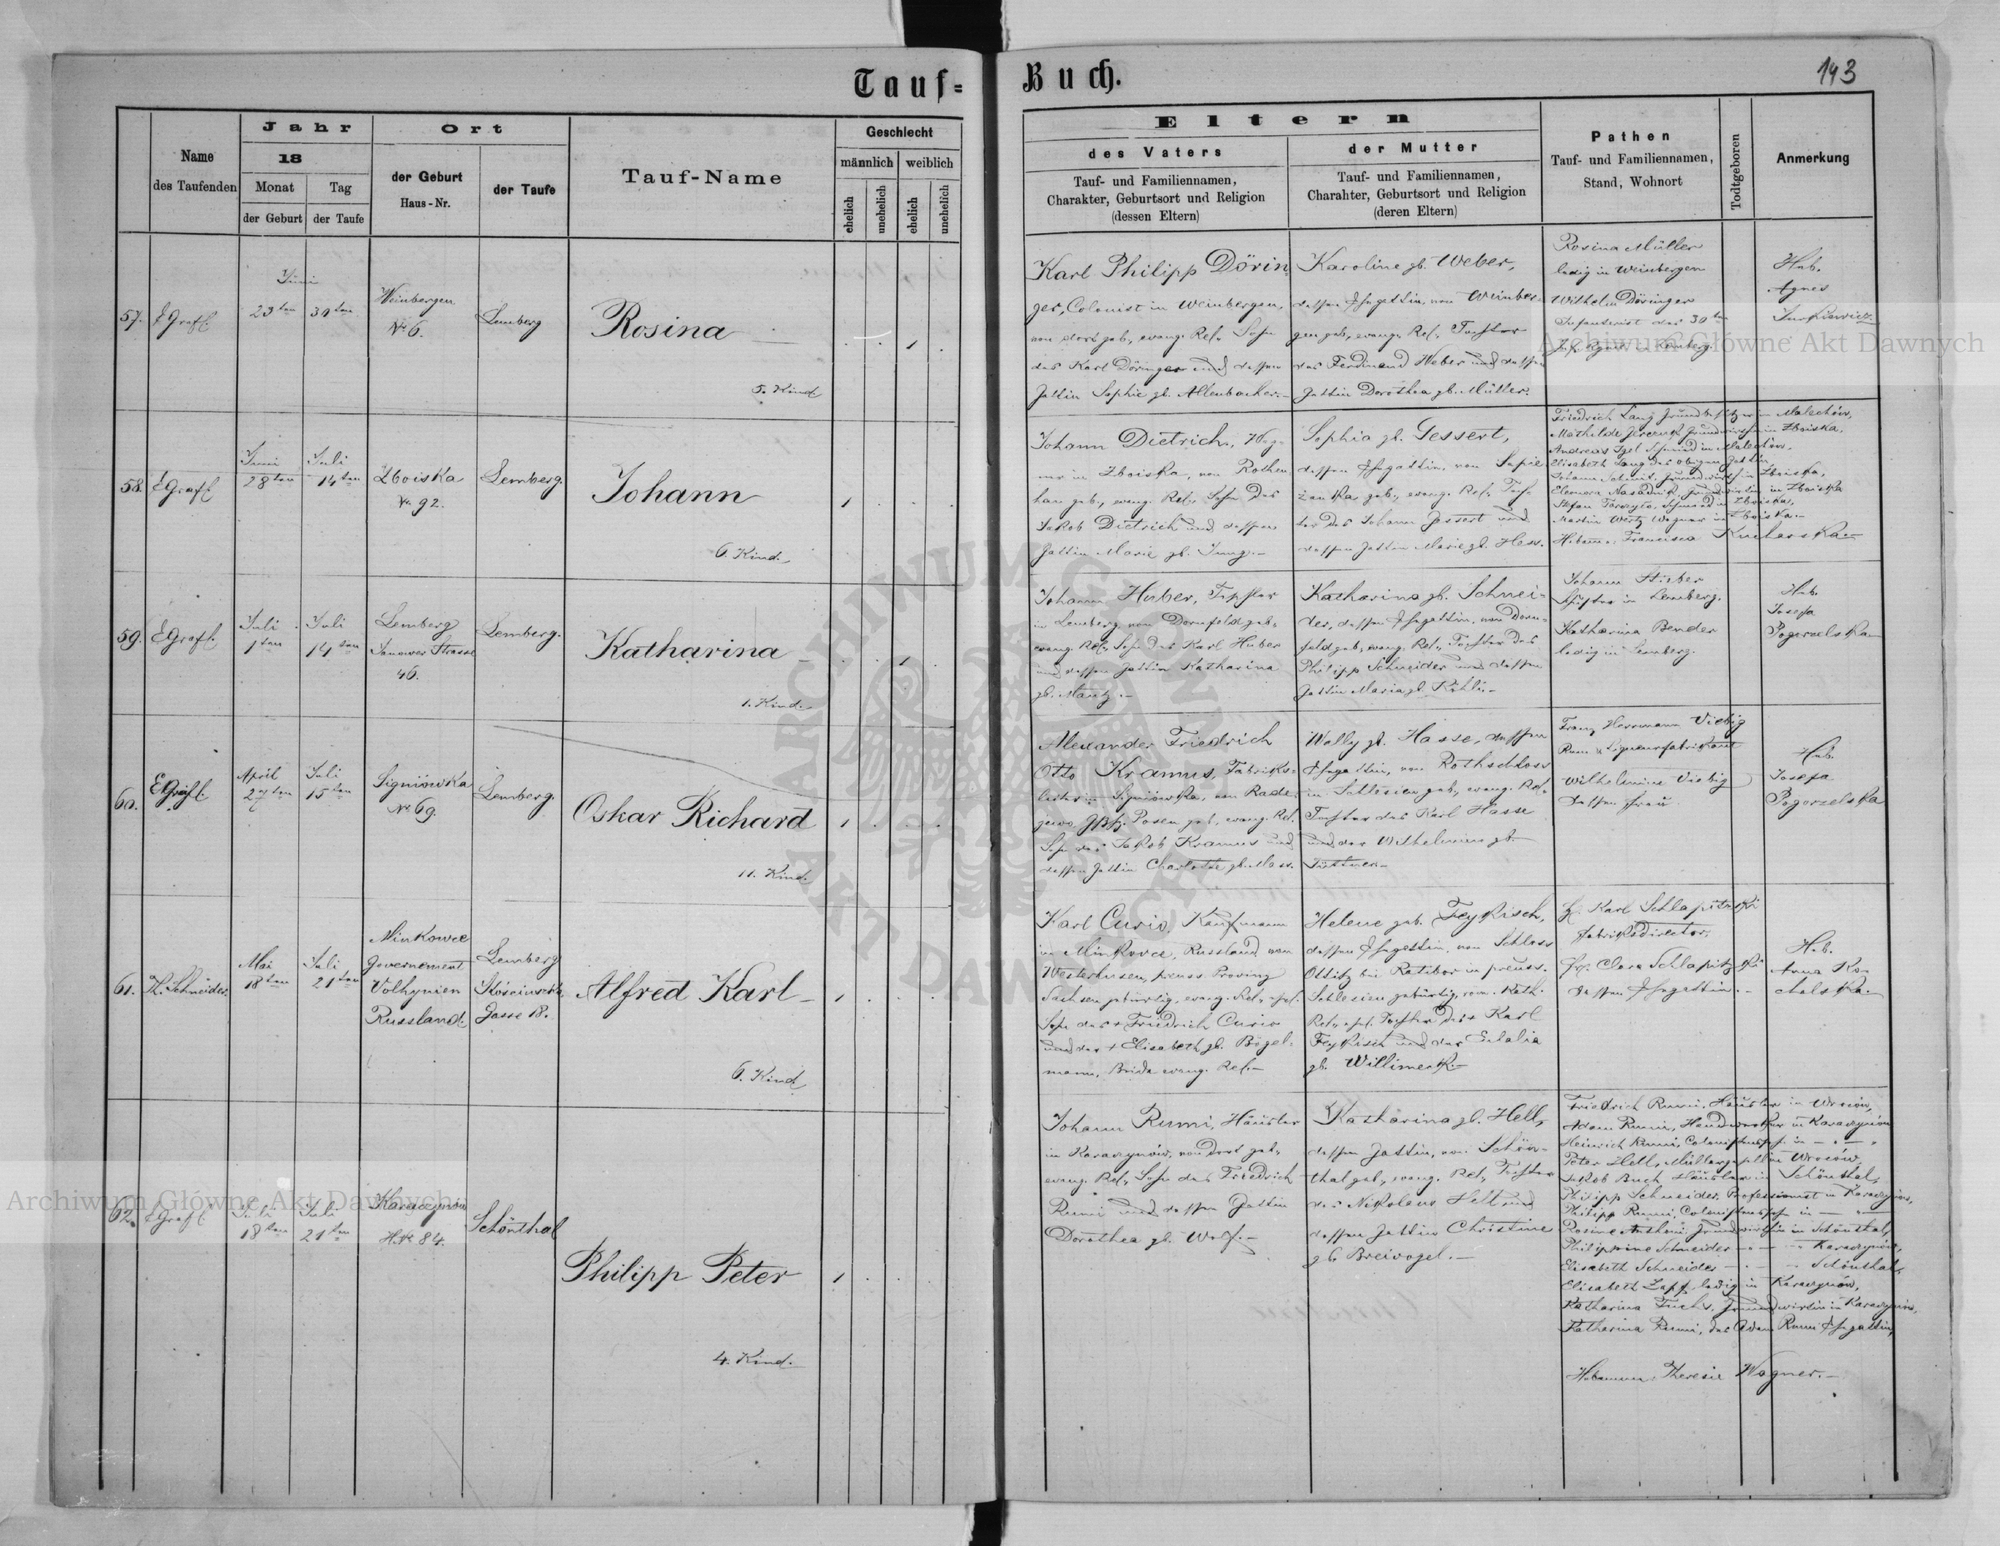 Tauf=
Buch.
143
Name
des Taufenden
Jahr
18
Monat
Tag
der Geburt
der Taufe
Ort
der Geburt
Haus-Nr.
der Taufe
Tauf-Name
Geschlecht
männlich
weiblich
ehelich
unehelich
ehelich
unehelich
Eltern
des Vaters
Tauf- und Familiennamen,
Charakter, Geburtsort und Religion
(dessen Eltern)
der Mutter
Tauf- und Familiennamen,
Charahter, Geburtsort und Religion
(deren Eltern)
Pathen
Tauf- und Familiennamen,
Stand, Wohnort
Todtgeboren
Anmerkung
57.
Juni
23ten
30ten
Weinbergen
No 6.
Lemberg
Rosina
5. Kind
Karl Philipp Dörin-
ger, Colonist in Weinbergen,
von dort geb., evang. Ref., Sohn
des Karl Döringer und dessen
Gattin Sophie gb. Altenbacher.-
Karoline gb. Weber,
dessen Ehegattin, von Weinber-
gen geb., evang. Ref., Tochter
des Ferdinand Weber und dessen
Gattin Dorothea gb. Müller.
Rosina Müller
ledig in Weinbergen
Wilhelm Döringer
Infanterist des 30ten
Lemberg.
Heb.
Agnes
58.
Juni
28ten
Juli
14ten
Zboiska
No 92.
Lemberg.
Johann
6. Kind.
Johann Dietrich, Wag-
ner in Zboiska, von Rothen-
han geb., evang. Ref., Sohn des
Jakob Dietrich und dessen
Gattin Marie gb. Jung.-
Sophia gb. Gessert,
dessen Ehegattin, von Sapie-
zanka geb., evang. Ref., Toch-
ter des Johann Gessert und
dessen Gattin Marie gb. Hess.
Friedrich Lang Grundbesitzer in Malechów,
Mathilde
in Zboiska,
Andreas Igel Schmied in Malechów,
Elisabeth Lang des obigen Gattin,
Johann Schmidt,
in Zboiska,
Eleonora
in Zboiska
Stefan
Schmied in Zboiska,
Martin Wertz Wagner in Zboiska.-
Hebamme: Francisca Kucharska
59.
Juli
1ten
Juli
14ten
Lemberg
Janower Strasse
46.
Lemberg.
Katharina
1. Kind.
Johann Huber,
in Lemberg von Dornfeld geb.,
evang. Ref., Sohn des Karl Huber
und dessen Gattin Katharina
gb. Mautz.-
Katharina gb. Schnei-
der, dessen Ehegattin, von Dorn-
feld geb., evang. Ref., Tochter des
Philipp Schneider und dessen
Gattin Maria gb. Köhli.-
Johann
in Lemberg.
Katharina Bender
ledig in Lemberg.
Heb.
Josefa
Pogorzelska
60.
April
27ten
Juli
15ten
Signiówka
No 69.
Lemberg.
Oskar Richard
11. Kind.
Alexander Friedrich
Otto Kramus, Fabriks-
leiter in Signiówka, von
Posen geb., evang. Ref.
Sohn des Jakob Kramus und
dessen Gattin Charlotte gb.
Wally gb. Hasse, dessen
Ehegattin, von Rothschloss
in Schlesien geb., evang. Ref.,
Tochter des Karl Hasse
und der Wilhelmine gb.
Franz Hermann Viebig
Rum & Liqueurfabrikant
Wilhelmine Viebig
dessen Frau.
Heb.
Josefa
Pogorzelska
61.
H. Schneider.
Mai
18ten
Juli
21ten
Minkowce
Gouvernement
Volhynien
Russland.
Lemberg
Gasse 18.
Alfred Karl
6. Kind
Karl Curio, Kaufmann
in Minkowce, Russland, von
Westerhusen, preuss. Provinz
Sachsen gebürtig, evang. Ref.,
Sohn des + Friedrich Curio
und der + Elisabeth gb. Bögel-
mann, Beide evang. Ref.-
Helene geb. Feykisch,
dessen Ehegattin, von Schloss
Ottitz bei Ratibor in preuss.
Schlesien gebürtig, röm. kath.
Tochter des + Karl
Feykisch und der Eulalia
gb. Willimek.-
H. Karl Schlapitzki
Fabriksdirector,
Fr. Clara Schlapitzki
dessen Ehegattin.-
Heb.
Anna Ko-
chalska.
62.
Juli
18ten
Juli
21ten
Karaczynów
H.No 84.
Schönthal
Philipp Peter
4. Kind.
Johann Rumi, Häusler
in Karaczynów, von dort geb.,
evang. Ref., Sohn des Friedrich
Rumi und dessen Gattin
Dorothea gb. Wolf.-
Katharina gb. Hell,
dessen Gattin, von Schön-
thal geb., evang. Ref., Tochter
des Nikolaus Hell und
dessen Gattin Christine
gb Breivogel.-
Friedrich Rumi, Häusler in Wrocow,
Adam Rumi, Handwerker in Karaczynów
Heinrich Rumi, Colonistenssohn in
Peter Hell, Müllergeselle in Wrocow,
Jakob Buch Häusler in Schönthal,
Philipp Schneider, Professionist in Karaczynów,
Philipp Rumi, Colonistenssohn in
Rosine
Grundwirthin in Schönthal,
Philippine Schneider
Karaczynów,
Elisabeth Schneider
Schönthal,
Elisabeth Zapf, ledig in Karaczynów,
Katharina Fuchs, Grundwirtin in Karaczynów,
Katharina Rumi, des Adam Rumi Ehegattin,
Hebamme: Theresie Wagner.-
Archiwum Główne Akt Dawnych
Archiwum Główne Akt Dawnych
ARCHIWUM GŁÓWNE AKT DAWNYCH